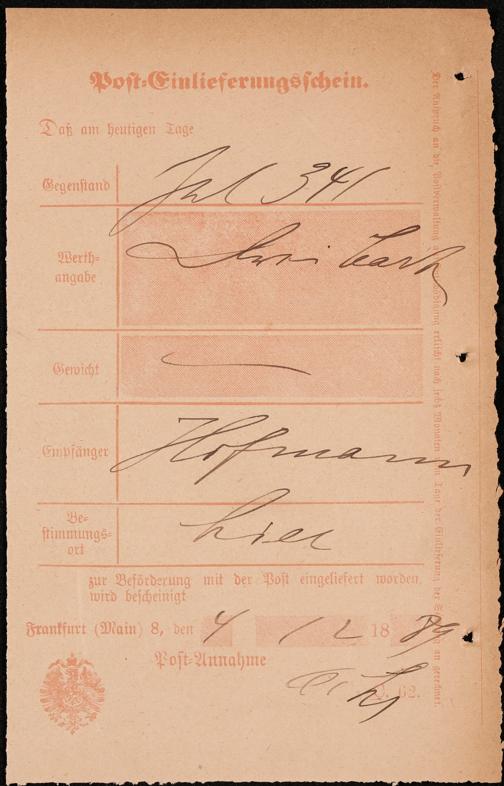 Post-Einlieferungsschein.
Daß am heutigen Tage
Gegenstand 341
Werth-
angabe
Gewicht
Empfänger Hofmann
Be-
stimmungs-
ort hier
zur Beförderung mit der Post eingeliefert worden,
wird bescheinigt
Frankfurt (Main) 8, den 4 / 12 1889
Post-Annahme
62.
Der Anspruch an die Postverwaltung erlischt nach sechs Monaten vom Tage der Einlieferung der an gerechnet.